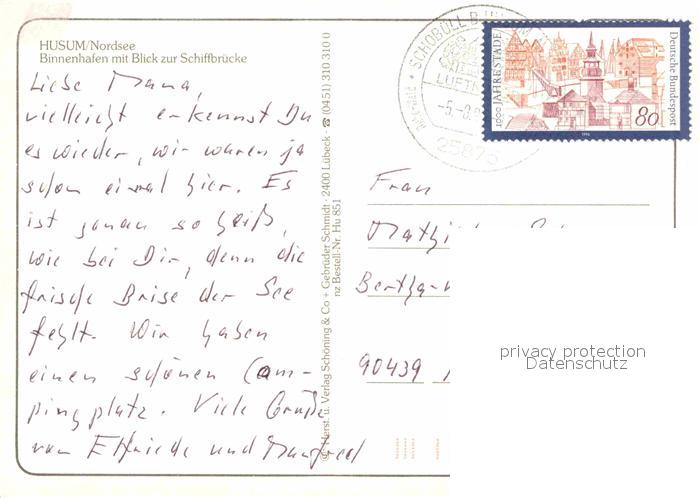 HUSUM/Nordsee
Binnenhafen mit Blick zur Schiffbrücke
Liebe Mama,
vielleicht erkennst Du
es wieder, wir waren ja
schon einmal hier. Es
ist genau so heiß,
wie bei Dir, denn die
frische Brise der See
fehlt. Wir haben
einen schönen Cam-
pingplatz. Viele Grüße
von Elfriede und Manfred
Herst. u. Verlag Schöning & Co + Gebrüder Schmidt · 2400 Lübeck · ☎ (0451) 310 310 0
nz Bestell-Nr. Hu 851
SCHOBÜLL B
25875
1000 JAHRE STADE
Deutsche Bundespost
80
1994
Frau
90439
privacy protection
Datenschutz